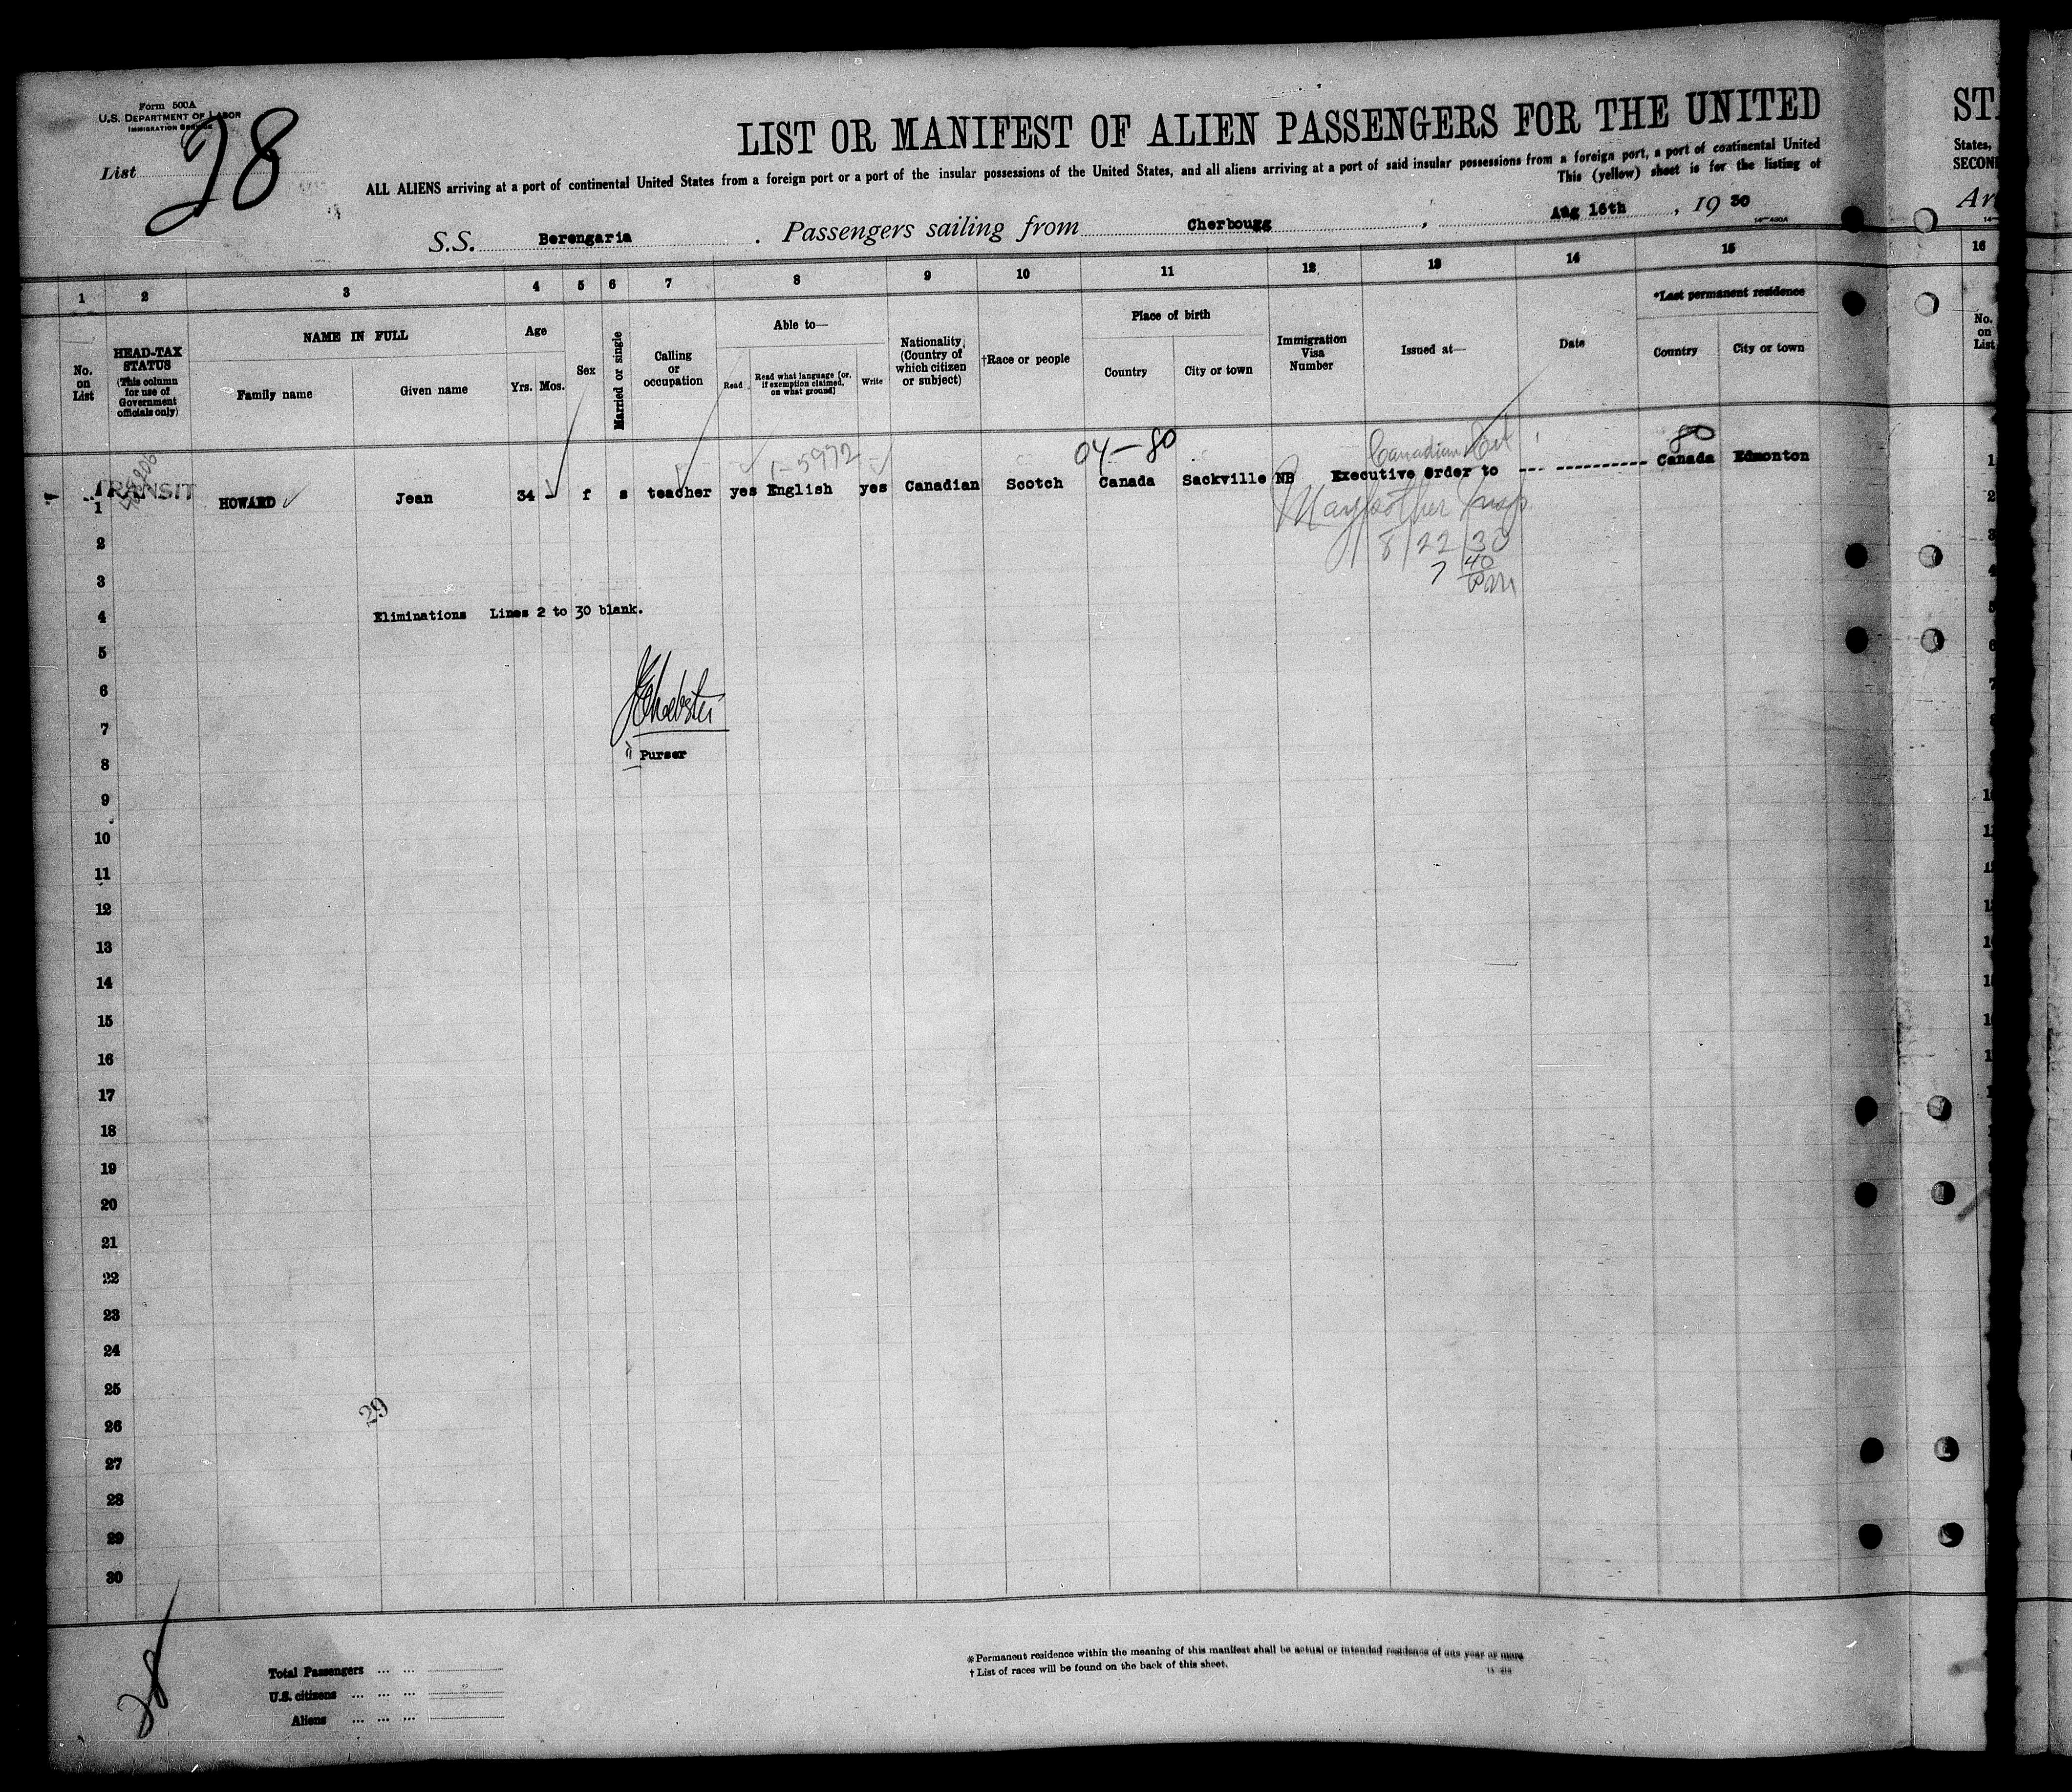 Form 500A
U.S. DEPARTMENT OF LABOR
IMMIGRATION SERVICE
List 28
LIST OR MANIFEST OF ALIEN PASSENGERS FOR THE UNITED
ALL ALIENS arriving at a port of continental United States from a foreign port or a port of the insular possessions of the United States, and all aliens arriving at a port of said insular possessions from a foreign port, a port of continental United
This (yellow) sheet is for the listing of
S.S. Berengaria . Passengers sailing from Cherbougg , Aug 16th , 19 30
14-430A
STA
States,
SECOND
Arr
1 2 3 4 5 6 7 8 9 10 11 12 13 14 15 16
No. on List
HEAD-TAX STATUS (This column for use of Government officials only)
NAME IN FULL
Family name Given name
Age
Yrs. Mos.
Sex
Married or single
Calling or occupation
Able to—
Read Read what language (or, if exemption claimed, on what ground) Write
Nationality (Country of which citizen or subject)
†Race or people
Place of birth
Country City or town
Immigration Visa Number
Issued at—
Date
*Last permanent residence
Country City or town
No. on List
1-5972 04-80 Canadian 80
TRANSIT
1 HOWARD Jean 34 - f s teacher yes English yes Canadian Scotch Canada Sackville NB Executive Order to --- ---------- Canada Edmonton
8/22/30
7 40 PM
2
3
Eliminations Lines 2 to 30 blank.
4
5
6
7
Purser
8
9
10
11
12
13
14
15
16
17
18
19
20
21
22
23
24
25
29
26
27
28
29
30
28
Total Passengers ... ...
U.S. citizens ... ... ...
Aliens ... ... ...
*Permanent residence within the meaning of this manifest shall be actual or intended residence of one year or more
† List of races will be found on the back of this sheet.